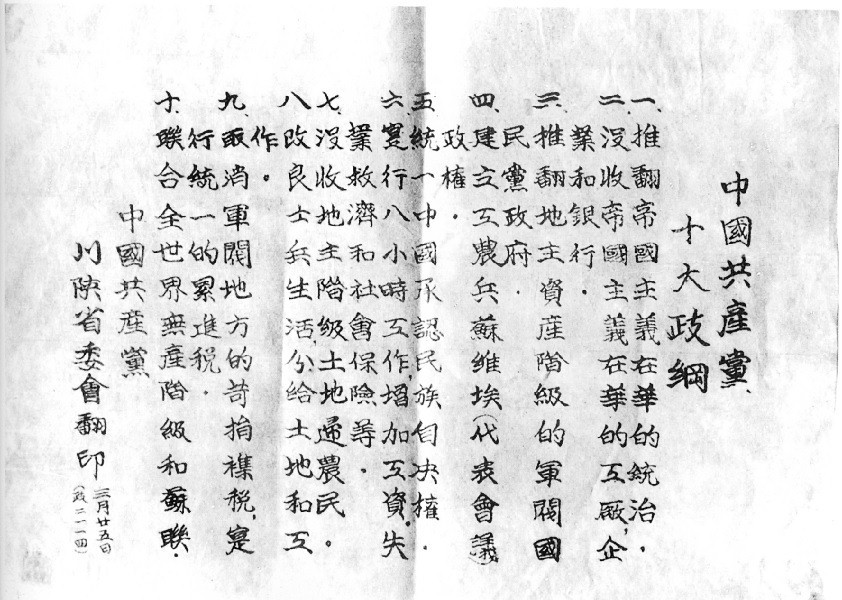 中國共產黨
十大政綱
一、推翻帝國主義在華的統治．
二、沒收帝國主義在華的工厰，企
業和銀行．
三、推翻地主資產階級的軍閥國
民黨政府．
四、建立工農兵蘇维埃(代表會議)
政權．
五、統一中國承認民族自决權．
六、寔行八小時工作，增加工資，失
業救濟和社會保險等．
七、沒收地主階級土地歸農民。
八、改良士兵生活，分給土地和工
作。
九、取消軍閥地方的苛捐襍稅，寔
行統一的累進税．
十、聯合全世界無產階級和蘇聯．
中國共產黨
川陝省委會翻印
三月廿五日
(政二一一四)